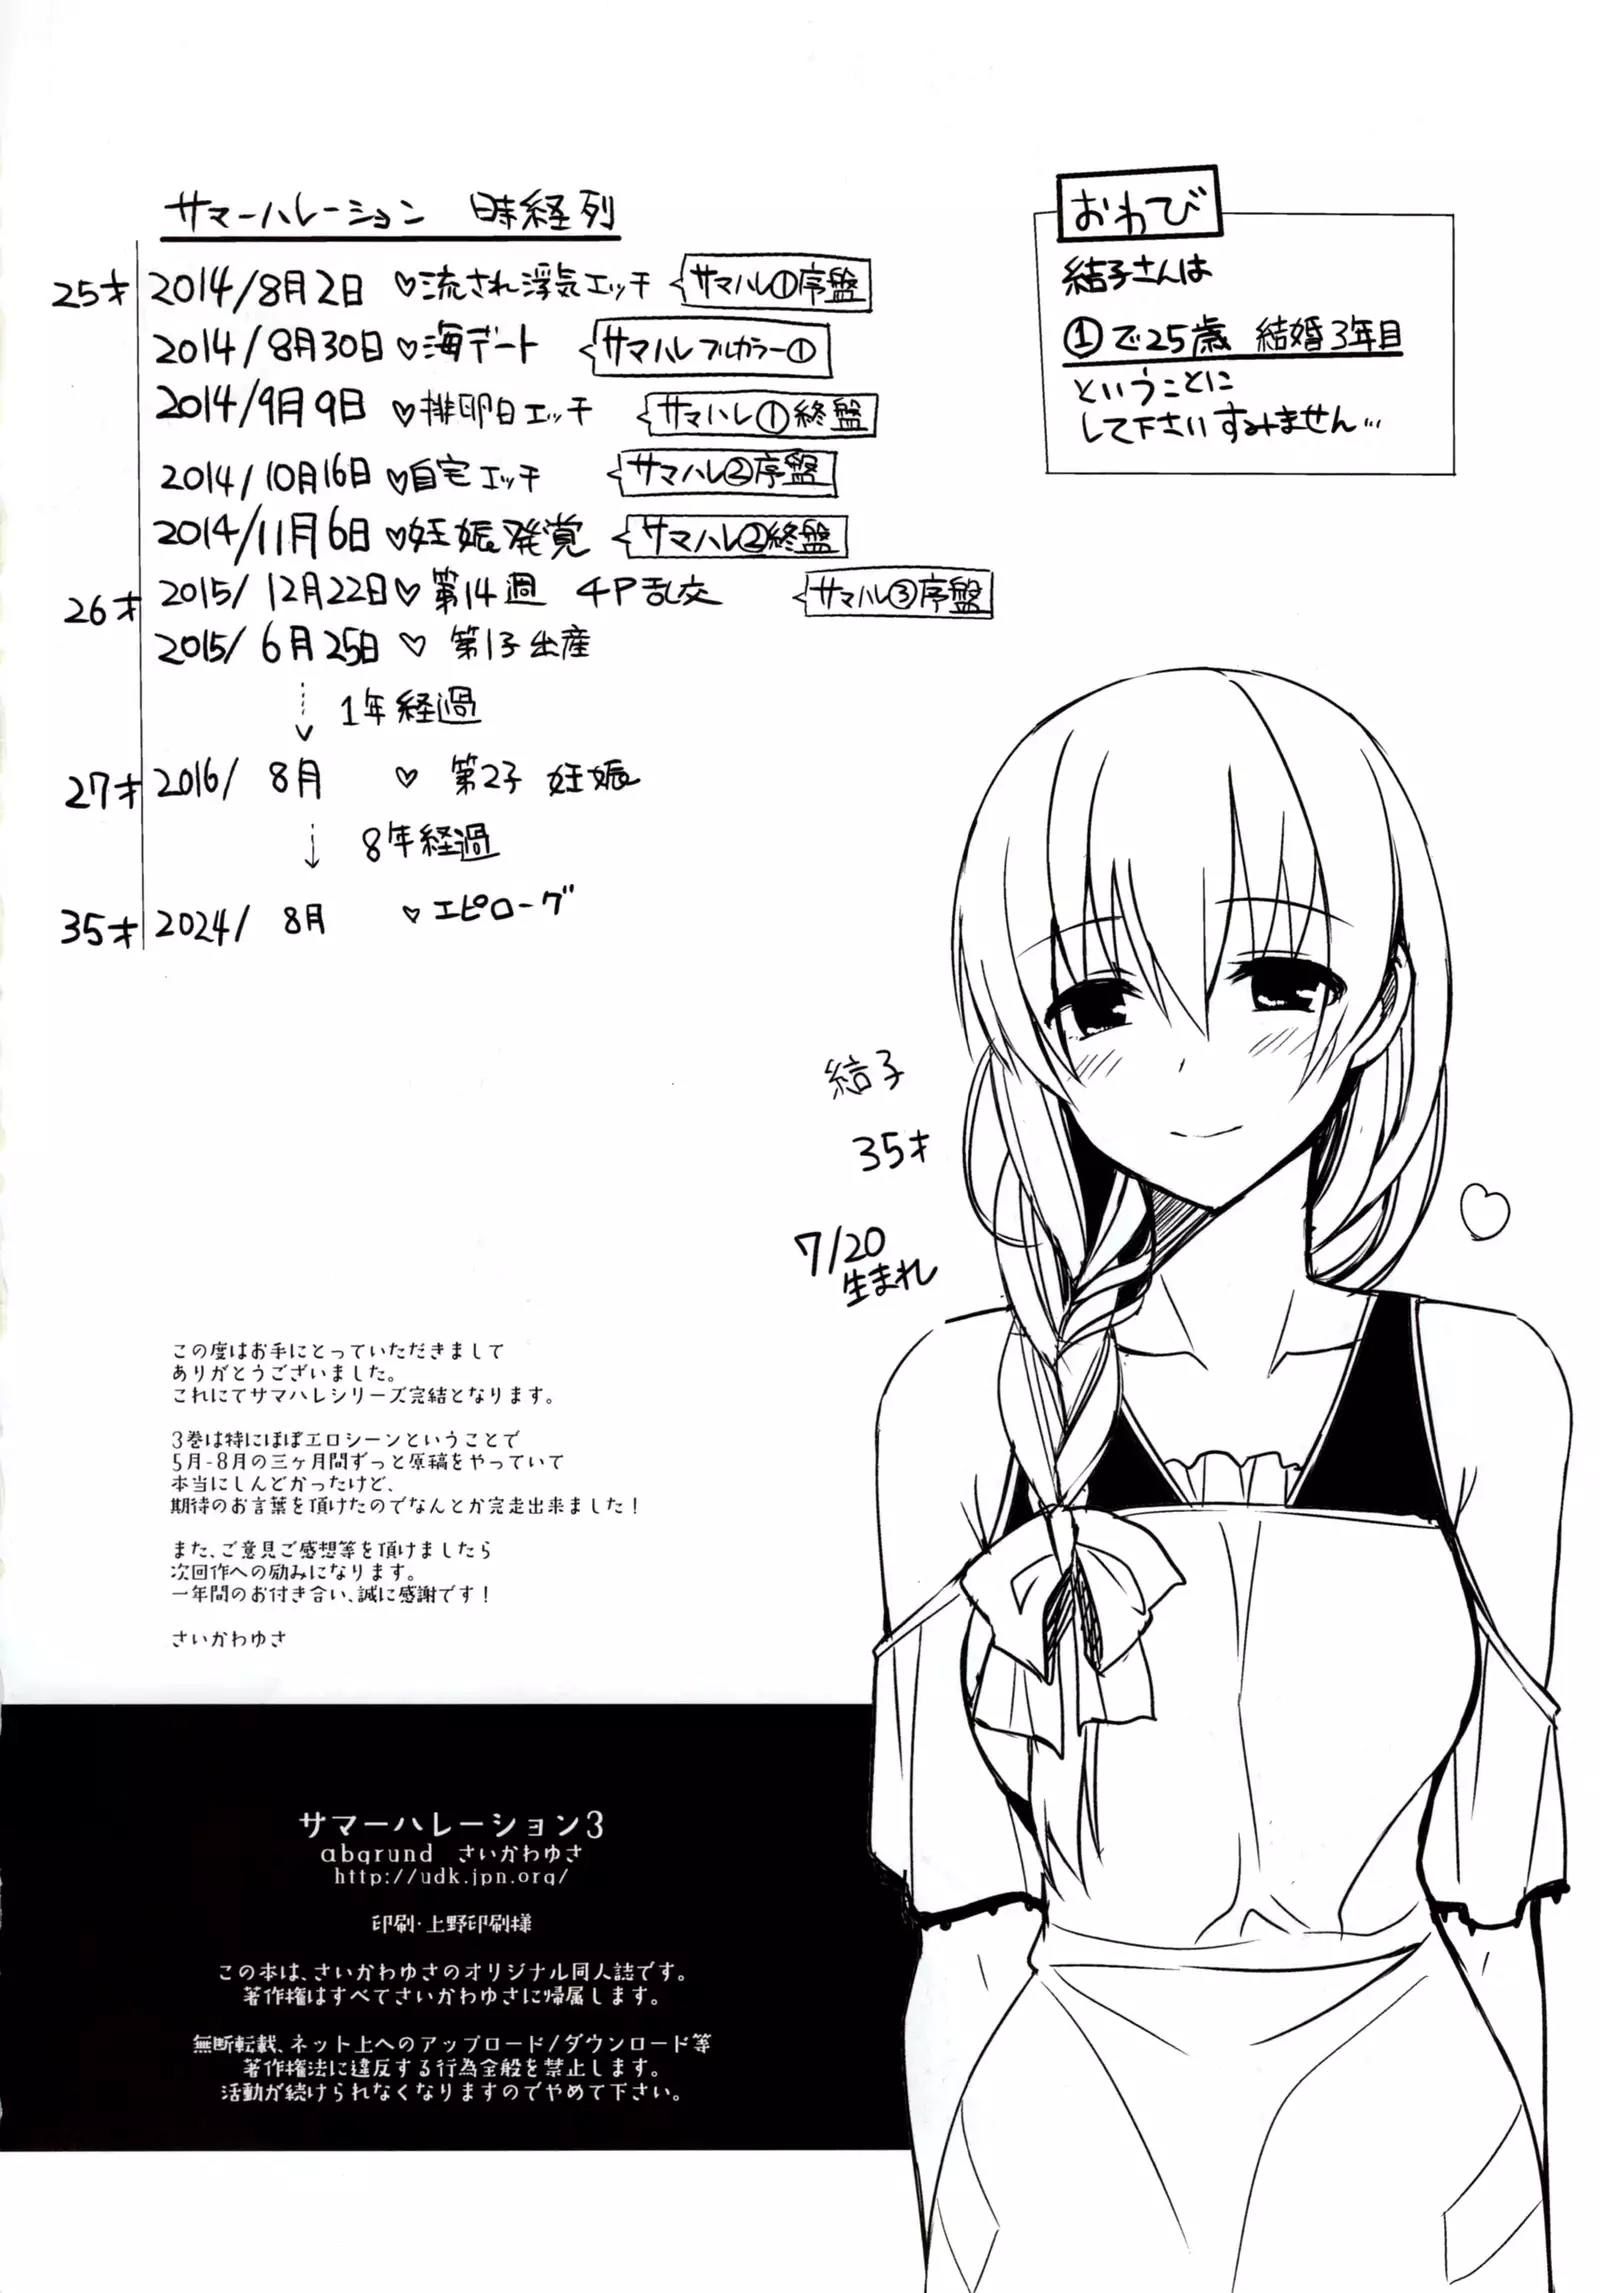 サマーハレーション 時経列
25才 2014/8月2日 ♡流され浮気エッチ サマハレ①序盤
2014/8月30日 ♡海デート サマハレフルカラー①
2014/9月9日 ♡排卵日エッチ サマハレ①終盤
2014/10月16日 ♡自宅エッチ サマハレ②序盤
2014/11月6日 ♡妊娠発覚 サマハレ②終盤
26才 2015/12月22日 ♡第14週 4P乱交 サマハレ③序盤
2015/6月25日 ♡ 第1子出産
1年経過
27才 2016/8月 ♡ 第2子 妊娠
8年経過
35才 2024/8月 ♡エピローグ
おわび
結子さんは
①で25歳 結婚3年目
ということに
して下さいすみません…
結子
35才
7/20
生まれ
この度はお手にとっていただきまして
ありがとうございました。
これにてサマハレシリーズ完結となります。
3巻は特にほぼエロシーンということで
5月-8月の三ヶ月間ずっと原稿をやっていて
本当にしんどかったけど、
期待のお言葉を頂けたのでなんとか完走出来ました！
また、ご意見ご感想等を頂けましたら
次回作への励みになります。
一年間のお付き合い、誠に感謝です！
さいかわゆさ
サマーハレーション3
abgrund さいかわゆさ
http://udk.jpn.org/
印刷・上野印刷様
この本は、さいかわゆさのオリジナル同人誌です。
著作権はすべてさいかわゆさに帰属します。
無断転載、ネット上へのアップロード/ダウンロード等
著作権法に違反する行為全般を禁止します。
活動が続けられなくなりますのでやめて下さい。